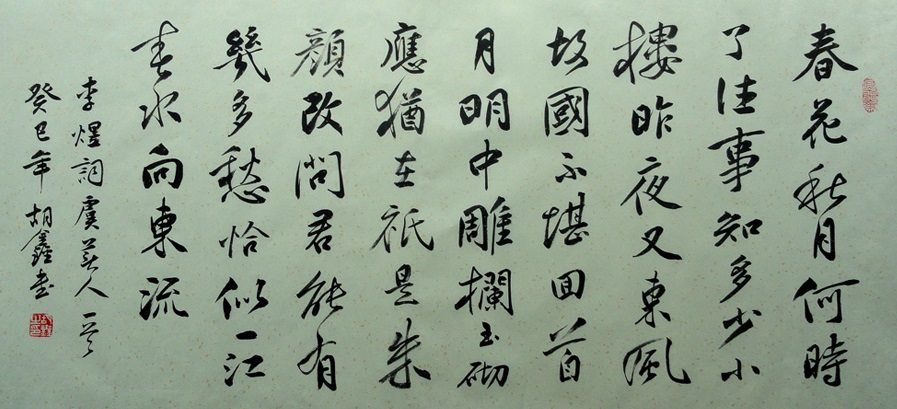 春花秋月何時
了往事知多少小
樓昨夜又東風
故國不堪回首
月明中雕欄玉砌
應猶在祇是朱
顏改問君能有
幾多愁恰似一江
春水向東流
李煜詞虞美人一首
癸巳年胡鑫書